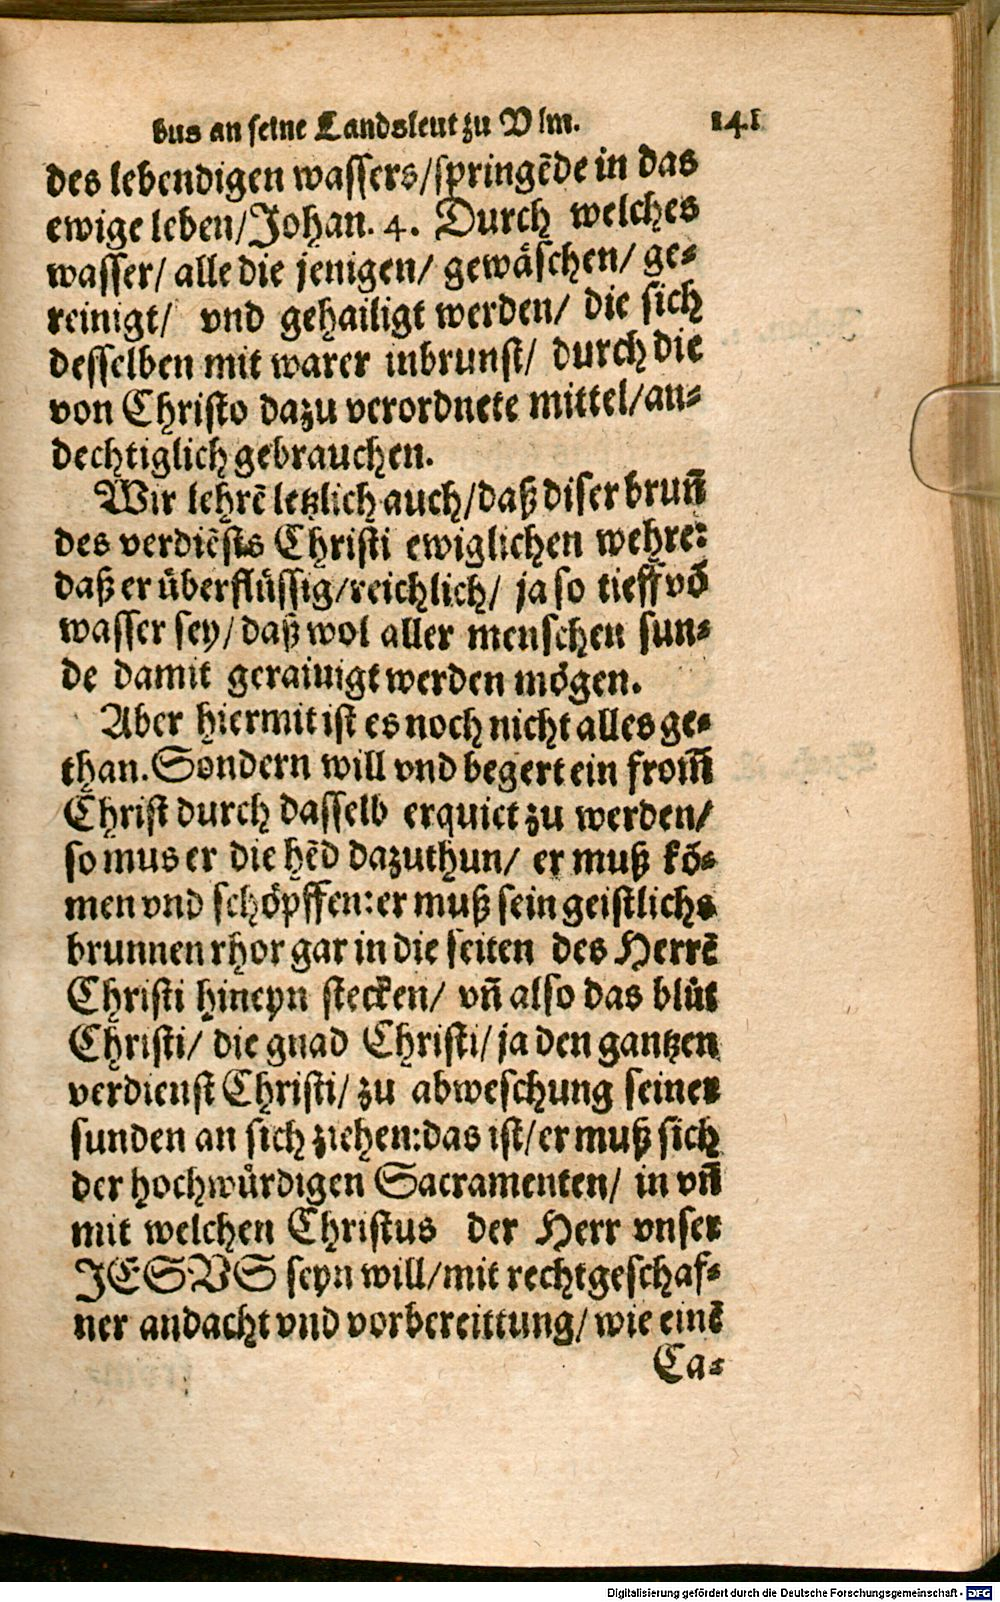 bus an seine Landsleut zu Vlm. 141
des lebendigen wassers/springẽde in das
ewige leben/Johan. 4. Durch welches
wasser/ alle die jenigen/ gewäschen/ ge-
reinigt/ vnd gehailigt werden/ die sich
desselben mit warer inbrunst/ durch die
von Christo dazu verordnete mittel/an-
dechtiglich gebrauchen.
Wir lehrẽ letzlich auch/daß diser brun̄
des verdiẽsts Christi ewiglichen wehre:
daß er überflüssig/reichlich/ ja so tieff võ
wasser sey/daß wol aller menschen sun-
de damit gerainigt werden mögen.
Aber hiermit ist es noch nicht alles ge-
than. Sondern will vnd begert ein from̄
Christ durch dasselb erquict zu werden/
so mus er die hẽd dazuthun/ er muß kõ-
men vnd schöpffen: er muß sein geistlichs
brunnen rhor gar in die seiten des Herrẽ
Christi hineyn stecken/ vñ also das blůt
Christi/ die gnad Christi/ja den gantzen
verdienst Christi/ zu abweschung seiner
sunden an sich ziehen: das ist/er muß sich
der hochwürdigen Sacramenten/ in vñ
mit welchen Christus der Herr vnser
JESVS seyn will/mit rechtgeschaf-
ner andacht vnd vorbereittung/ wie einẽ
Ca-
Digitalisierung gefördert durch die Deutsche Forschungsgemeinschaft - DFG